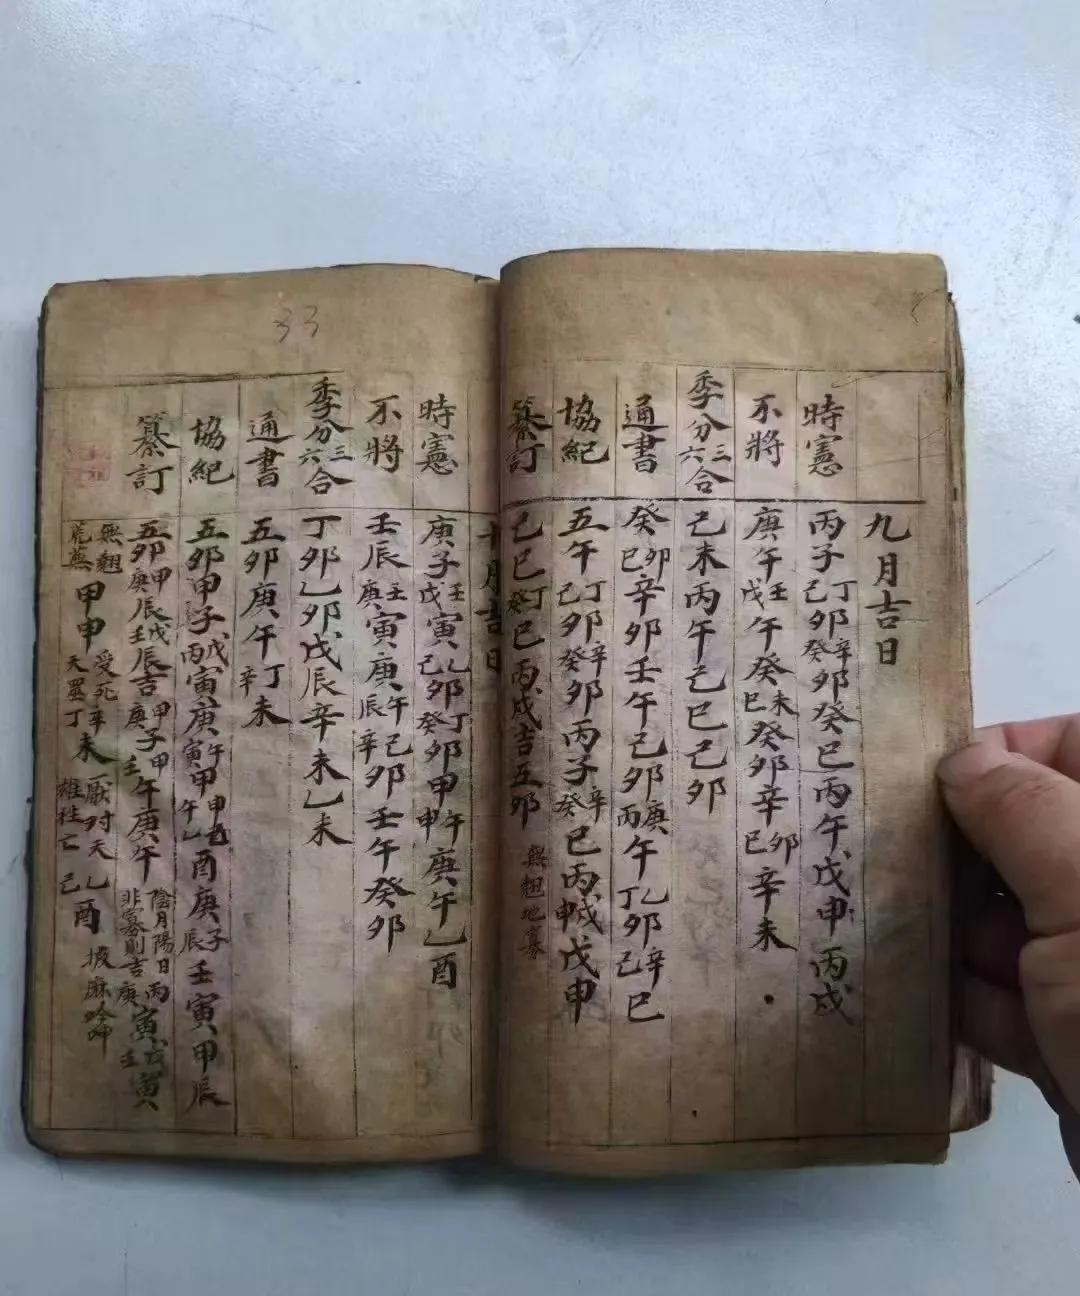 九月吉日
時憲
丙子丁卯己卯辛卯癸巳丙午戊申丙戌
不將
庚午壬午戊午癸未癸巳癸卯辛卯辛巳辛未
季分三六合
己未丙午己巳己卯
通書
癸卯癸巳辛卯壬午己卯庚午丙午丁卯乙卯己巳辛巳
協紀
五午丁卯己卯辛卯癸卯丙子辛巳癸巳丙申丙戌戊申
纂訂
己巳丁巳癸巳丙戌吉五卯無翹地寡
十月吉日
時憲
庚子壬寅戊寅乙卯己卯丁卯癸卯甲午甲申庚午乙酉
不將
壬辰壬寅庚寅庚午庚辰己卯辛卯壬午癸卯
季分三六合
丁卯乙卯戊辰辛未乙未
通書
五卯庚午丁未辛未
協紀
五卯甲子戊寅丙寅庚午庚寅甲申甲午乙酉庚子庚辰壬寅甲辰
纂訂
五卯甲辰庚辰戊辰壬辰吉庚子甲子甲午壬午庚午陰月陽日非寡則吉丙寅庚寅戊寅壬寅
無翹荒蕪甲申受死天罡辛未丁未厭對天雄往亡乙酉己酉披麻吟呻
33